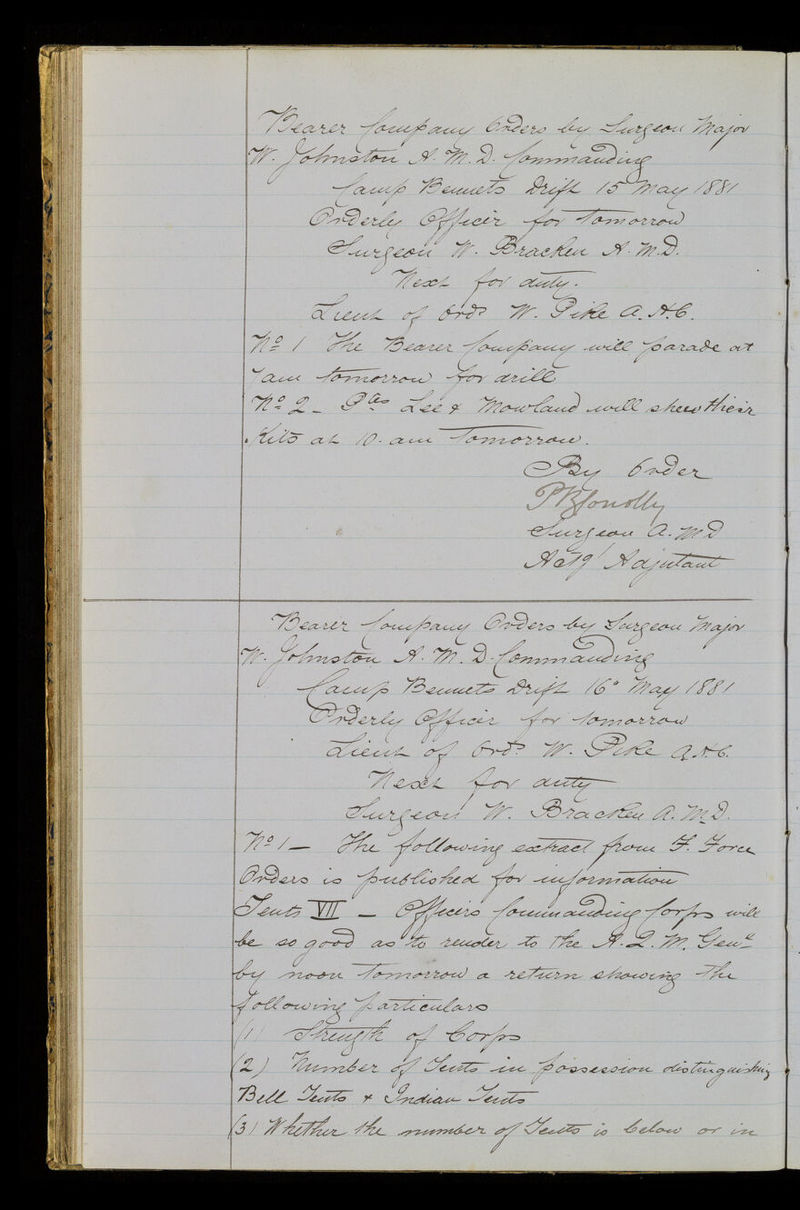 Bearer Company Orders by Surgeon Major
W. Johnston A. M. D. Commanding
Camp Bennets Drift 15 May 1881
Orderly Officer for Tomorrow
Surgeon W. Bracken A. M. D.
Next for duty.
Lieut of Ord? W. Pike A. H. C.
No 1 The Bearer Company will parade at
7 am tomorrow for drill
No 2 - Ptes Lee & Mowland will shew their
Kits at 10. am Tomorrow.
By Order
P B Conolly
Surgeon A. M D
Actg Adjutant
Bearer Company Orders by Surgeon Major
W. Johnston A. M. D. Commanding
Camp Bennets Drift 16o May 1881
Orderly Officer for tomorrow
Lieut of Ord? W. Pike A. H. C.
Next for duty
Surgeon W. Bracken A. M. D.
No 1 - The following extract from F. Force
Orders is published for information
Tents VII - Officers Commanding Corps will
be so good as to render to the A. Q. M. Genl
by noon Tomorrow a return showing the
following particulars
(1) Strength of Corps
(2) Number of Tents in possession distinguishing
Bell Tents & Indian Tents
(3) Whether the number of Tents is below or in